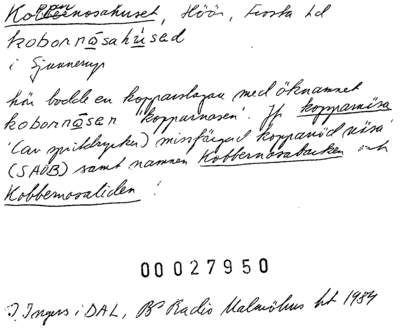 Kobbernosahuset, Höör, Frosta hd
kobornåsahúsed
i Gunnarup
här bodde en kopparslagare med öknamnet
kobornåsen "kopparnäsen". Jfr kopparnäsa
'(av spritdrycker) missfärgad kopparröd näsa'
(SAOB) samt namnen Kobbernosabacken och
Kobbernosaliden !
00027950
I. Ingers i DAL, Bd Radio Malmöhus ht 1984